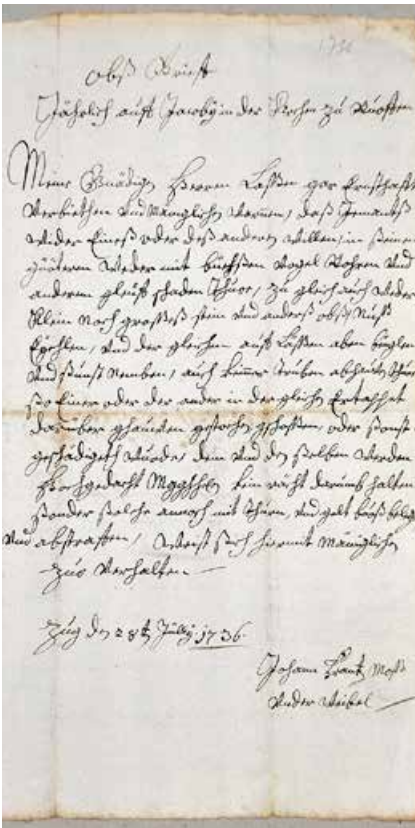 1736
Obß Brieff
Jährlich auff Jacoby in der Kirchen zu Ruoffen
Meine Gnädige Herren Lassen gar Ernsthafft
Verbiethen und Mäniglichen Warnen, daß Jemantß
Wider Eineß oder deß anderen Willen, in seinen
güöteren Weder mit büchßen Vogel Rohren und
anderem gleich schaden Thüoe, zu gleich auch weder
Klein Noch großeß stein und anderß obß, Nuß
Eychlen, und der gleichen auff Lassen aben
und sunst Nemben, auch keine abhauwe
So Einer oder der ander in der gleichen Ertapphet
darüber ghauwen gestochen gschossen oder sonst
geschädigeth wurde, dem und den selben werden
Hochgedacht MggHhrn kein rächt darumb halten
sonder solche annoch mit Thurn, und gelt buoß
und abstraffen, Weist sich hiermit Mäniglichen
zuo Verhalten
Zug den 28t July 1736.
Johann Frantz Moß
Under Weibel